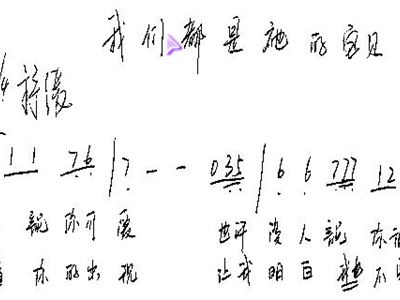 我们都是他的宝贝
稍慢
1 1 7 6 | 7 - - 0 3 5 | 6 6 7 7 7 1 2
说你可爱 也许没人说 你
你的出现 让我明白 我也不